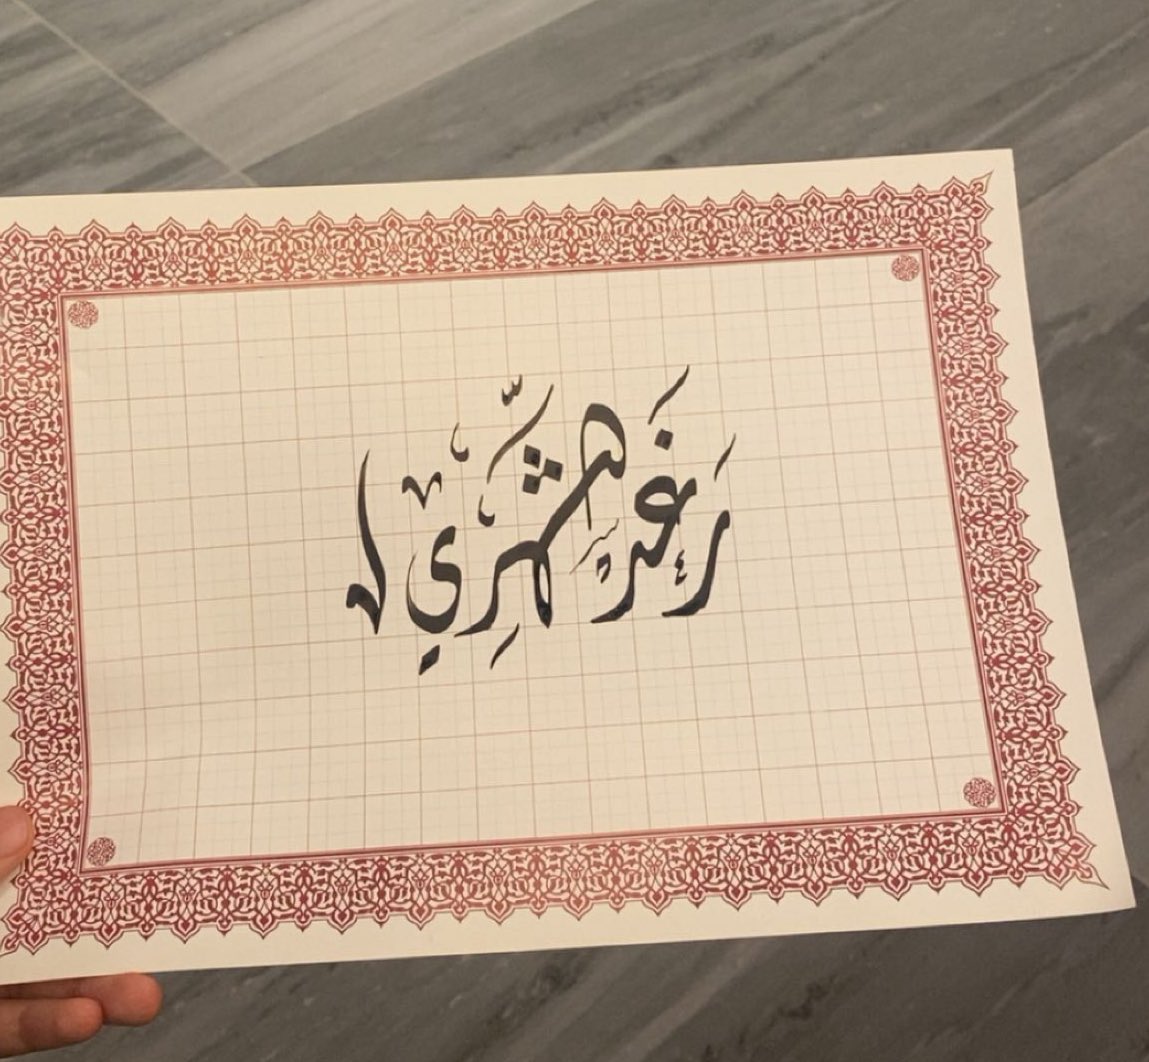 رَغَد الشَّهرِي